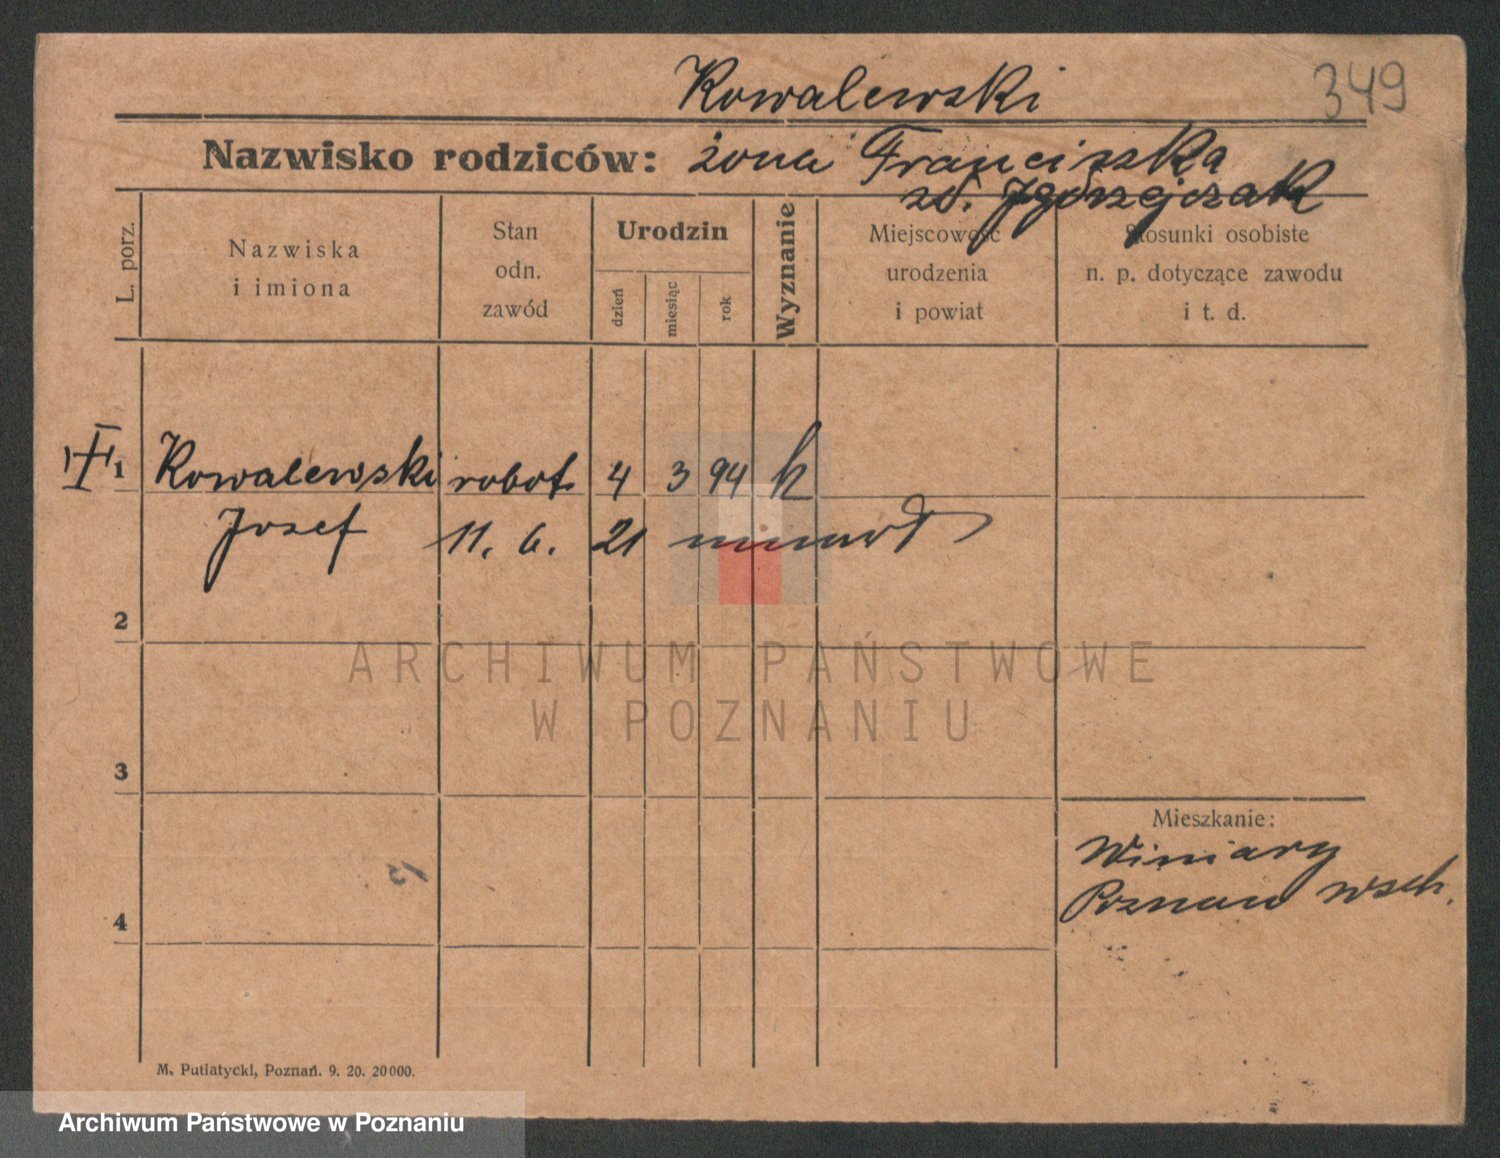 349
Kowalewski
Nazwisko rodziców: żona Franciszka
zd. Jgórzejczak
L. porz.
Nazwiska
i imiona
Stan
odn.
zawód
Urodzin
dzień
miesiąc
rok
Wyznanie
Miejscowość
urodzenia
i powiat
Stosunki osobiste
n. p. dotyczące zawodu
i t. d.
1 Kowalewski robot. 4 3 94 k
Jozef 11. 6. 21
2
3
4
Mieszkanie:
Winiary
Poznan wsch.
ARCHIWUM PAŃSTWOWE
W POZNANIU
M. Putiatycki, Poznań. 9. 20. 20000.
Archiwum Państwowe w Poznaniu